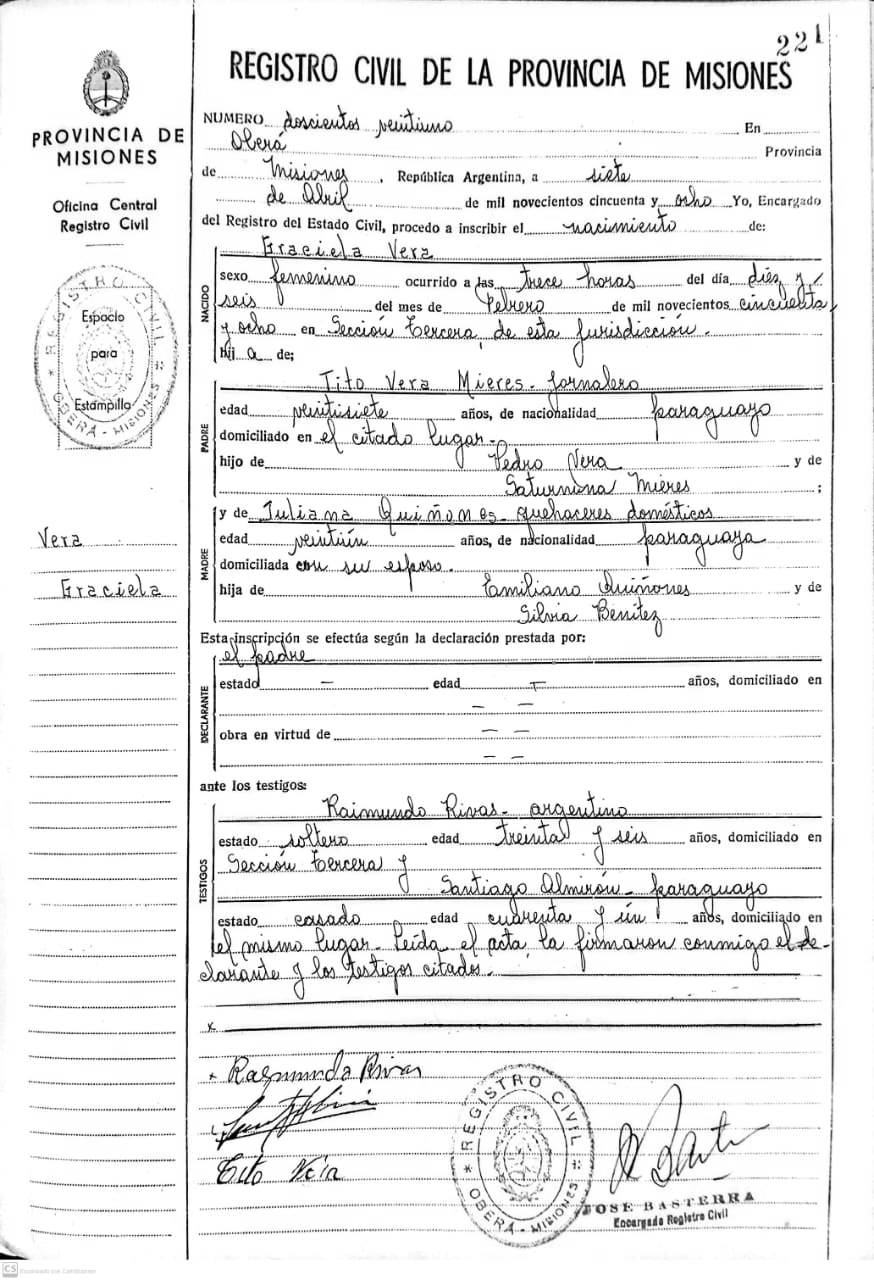 221
REGISTRO CIVIL DE LA PROVINCIA DE MISIONES
PROVINCIA DE
MISIONES
Oficina Central
Registro Civil
REGISTRO CIVIL
OBERÁ - MISIONES
Espacio
para
Estampilla
Vera
Graciela
NUMERO doscientos veintiuno En
Oberá Provincia
de Misiones, República Argentina, a siete
de Abril de mil novecientos cincuenta y ocho Yo, Encargado
del Registro del Estado Civil, procedo a inscribir el nacimiento de:
NACIDO
Graciela Vera
sexo femenino ocurrido a las trece horas del día diez y
seis del mes de Febrero de mil novecientos cincuenta
y ocho en Sección Tercera, de esta Jurisdicción.
hij a de;
PADRE
Tito Vera Mieres - Jornalero
edad veintisiete años, de nacionalidad paraguayo
domiciliado en el citado lugar -
hijo de Pedro Vera y de
Saturnina Mieres ;
MADRE
y de Juliana Quiñones - quehaceres domésticos
edad veintiún años, de nacionalidad paraguaya
domiciliada con su esposo.
hija de Emiliano Quiñones y de
Silvia Benitez
Esta inscripción se efectúa según la declaración prestada por:
DECLARANTE
el padre
estado — edad — años, domiciliado en
— —
obra en virtud de — —
— —
ante los testigos:
TESTIGOS
Raimundo Rivas - argentino
estado soltero edad treinta y seis años, domiciliado en
Sección Tercera y
Santiago Almirón - paraguayo
estado casado edad cuarenta y ún años, domiciliado en
el mismo lugar - Leída el acta, la firmaron conmigo el de-
clarante y los testigos citados.
x
Raimundo Rivas
Tito Vera
REGISTRO CIVIL
OBERÁ - MISIONES
JOSE BASTERRA
Encargado Registro Civil
CS Escaneado con CamScanner